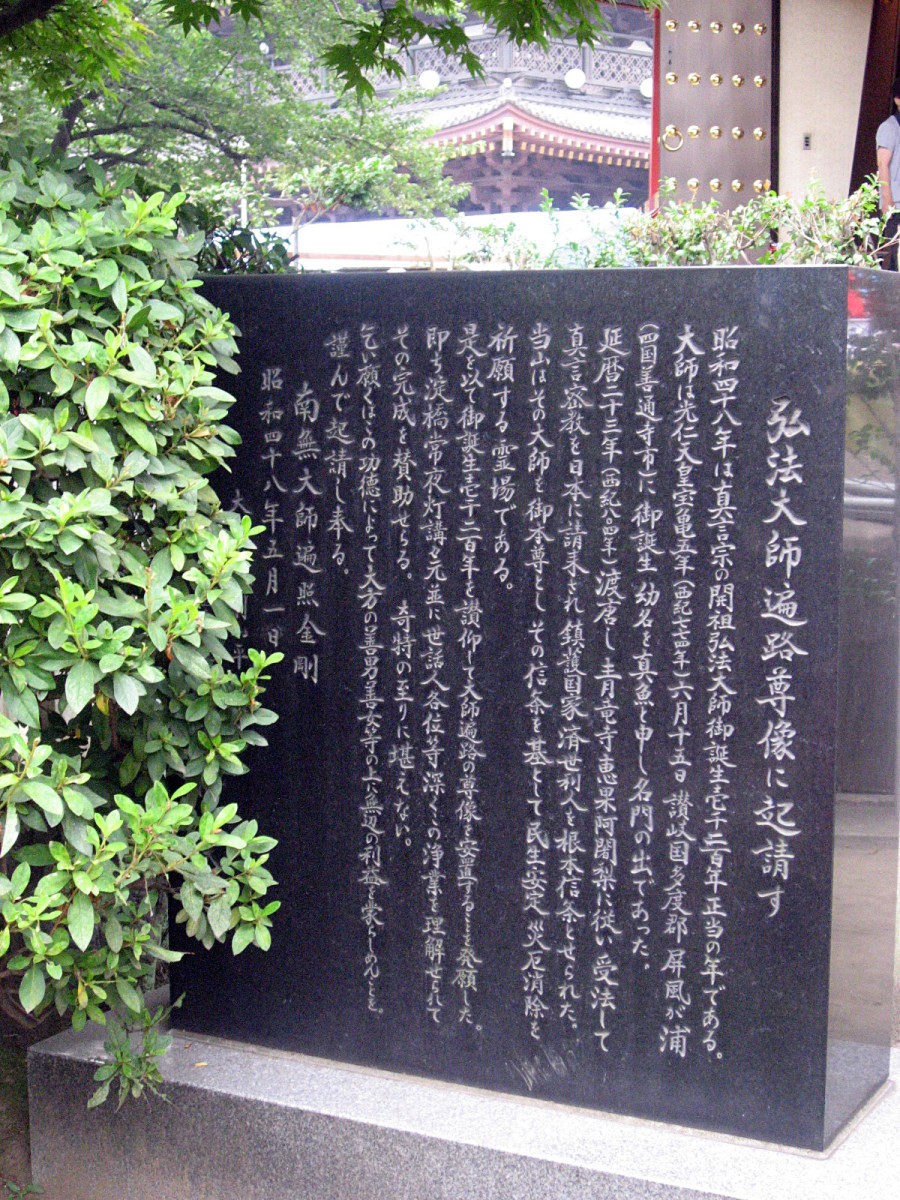 弘法大師遍路尊像に起請す
昭和四十八年は真言宗の開祖弘法大師御誕生壱千二百年正当の年である。
大師は光仁天皇宝亀五年(西紀七七四年)六月十五日 讃岐国多度郡屏風が浦
(四国善通寺市)に御誕生 幼名を真魚と申し名門の出であった。
延暦二十三年(西紀八〇四年)渡唐し 青竜寺恵果阿闍梨に従い 受法して
真言密教を日本に請来され 鎮護国家 済世利人を根本信条とせられた。
当山はその大師を御本尊とし その信条を基として民生安定 災厄消除を
祈願する霊場である。
是を以て御誕生壱千二百年を讃仰して大師遍路の尊像を安置することを発願した。
即ち淀橋常夜灯講を元並に世話人各位等深くこの浄業を理解せられて
その完成を賛助せらる。 奇特の至りに堪えない。
乞い願くはこの功徳によって大方の善男善女等の上に無辺の利益を蒙らしめんことを。
謹んで起請し奉る。
南無大師遍照金剛
昭和四十八年五月一日
大
平